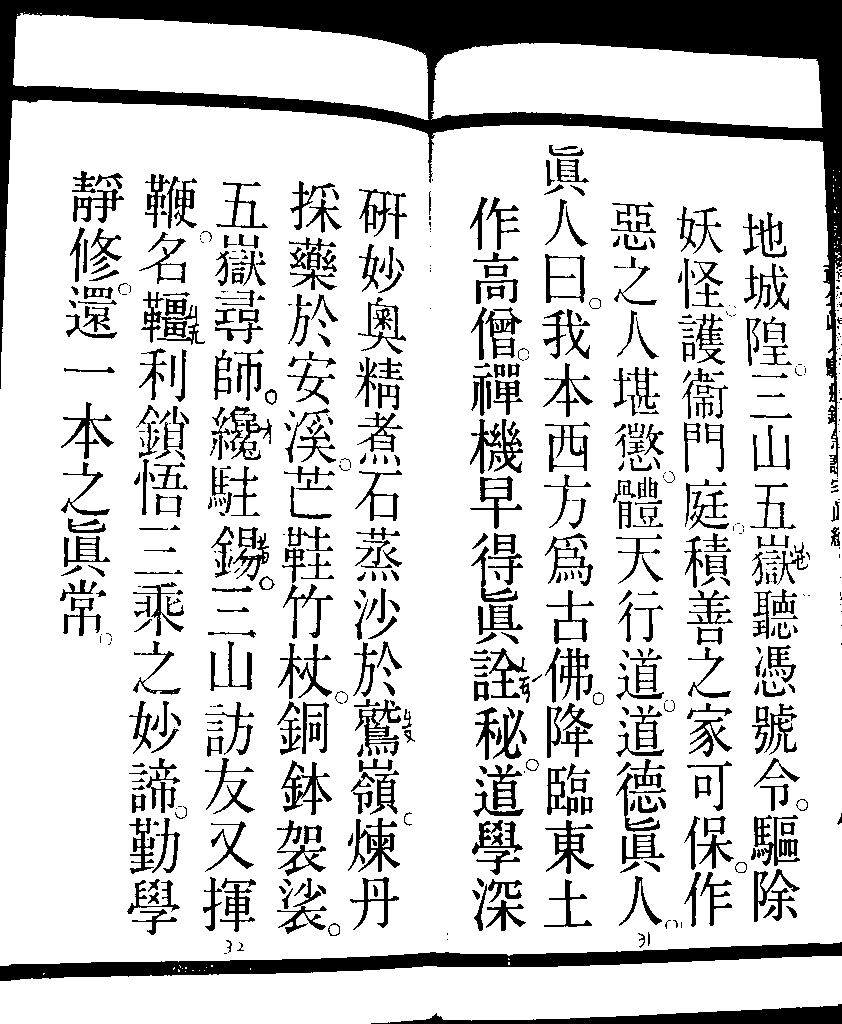 地城隍。三山五嶽聽憑號令。驅除
妖怪。護衞門庭。積善之家可保。作
惡之人堪懲。體天行道。道德眞人。
眞人曰。我本西方爲古佛。降臨東土
作高僧。禪機早得眞詮秘。道學深
31
研妙奧精煮石蒸沙於鷲嶺。煉丹
採藥於安溪。芒鞋竹杖。銅鉢袈裟。
五嶽尋師。纔駐錫。三山訪友又揮
鞭。名韁利鎖悟三乘之妙諦。勤學
靜修。還一本之眞常。
32